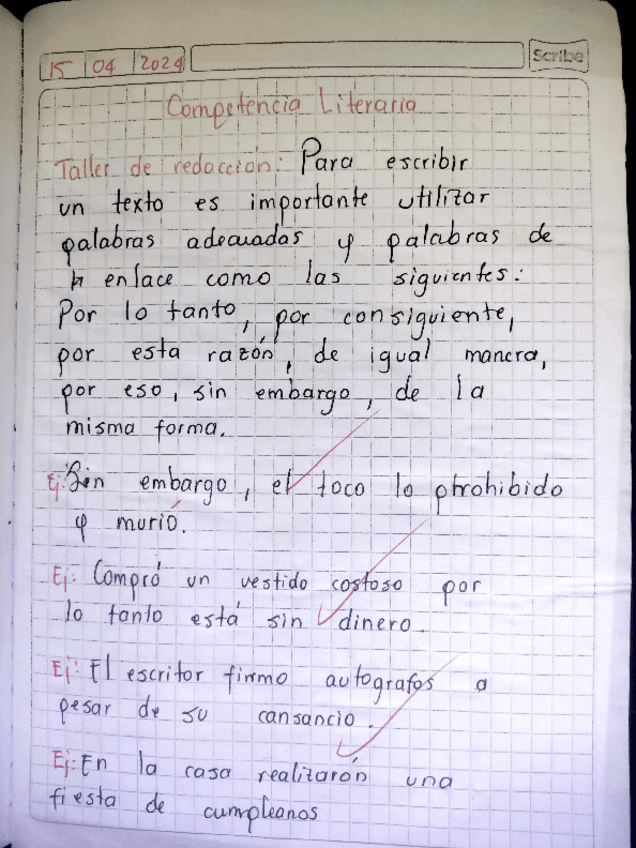 15 04 2024 Scribe
Competencia Literaria
Taller de redacción: Para escribir
un texto es importante utilizar
palabras adecuadas y palabras de
enlace como las siguientes:
Por lo tanto, por consiguiente,
por esta razón, de igual manera,
por eso, sin embargo, de la
misma forma.
Ej: Sin embargo, el toco lo prohibido
y murió.
Ej: Compró un vestido costoso por
lo tanto está sin dinero.
Ej: El escritor firmo autografos a
pesar de su cansancio.
Ej: En la casa realizarón una
fiesta de cumpleanos